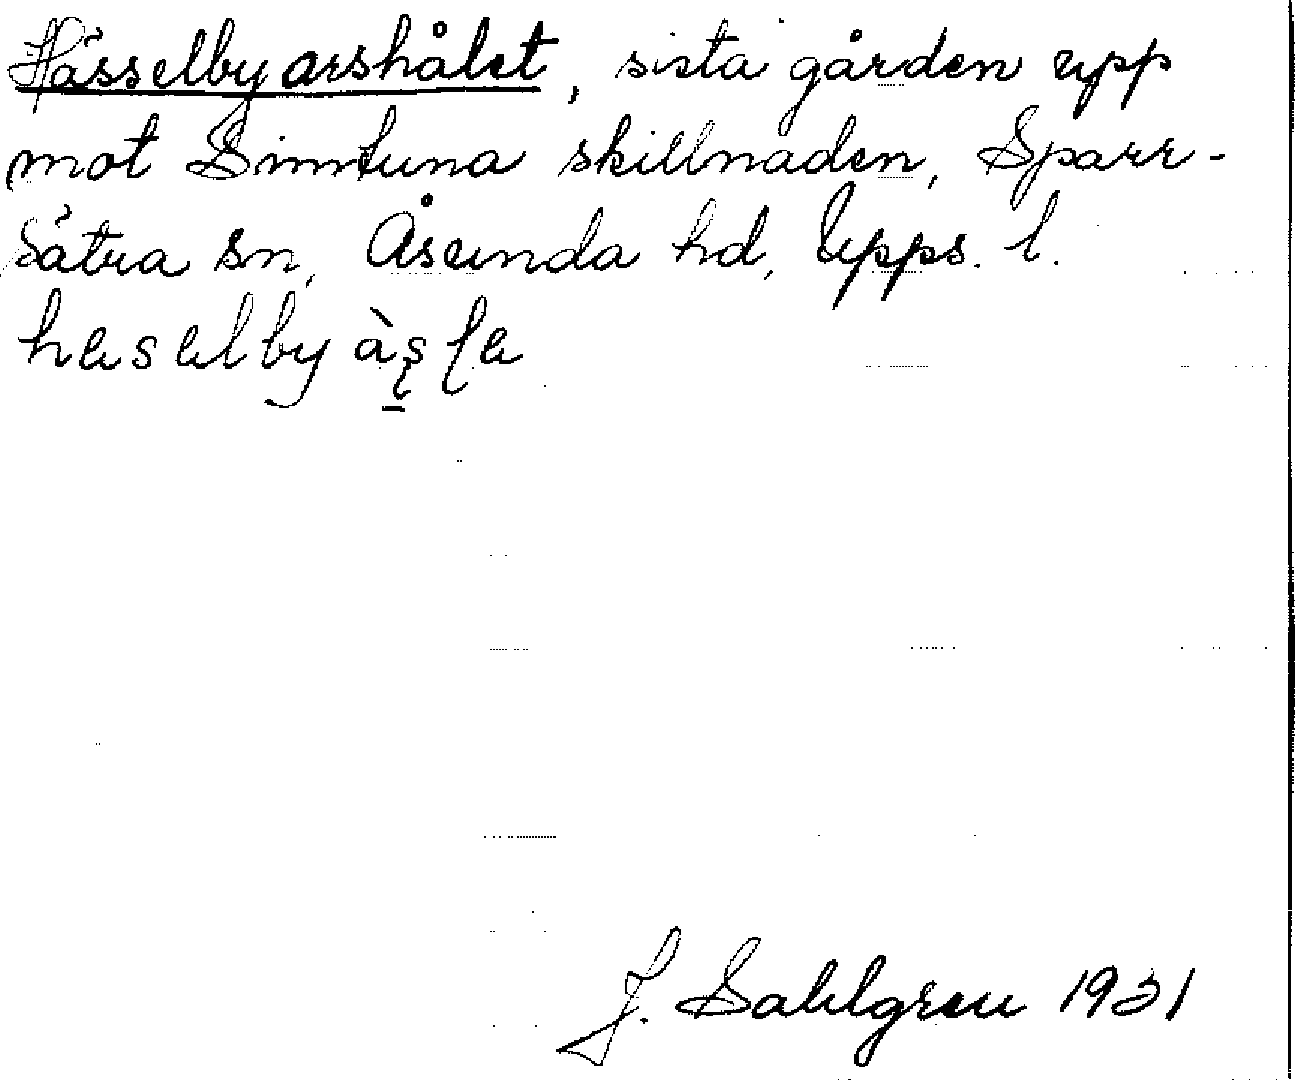 Hässelby arshålet, sista gården upp
mot Simtuna skillnaden, Sparr-
sätra sn, Åsunda hd, Upps. l.
J. Sahlgren 1931